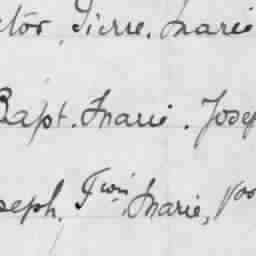 ctor, Pierre. Marie
Bapt. Marie. Josep
seph, Fçois, Marie,